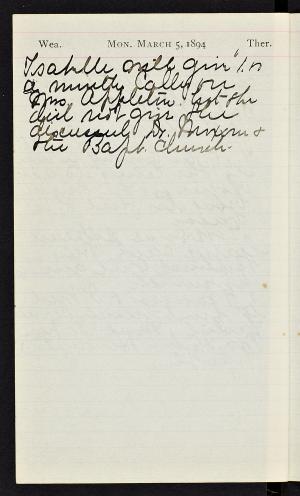 Wea. MON. MARCH 5, 1894 Ther.
Isabelle will give 1.00
a month. Called on
Mrs. Appleton but she
did not give
discussed Dr. &
the Bapt. Church.